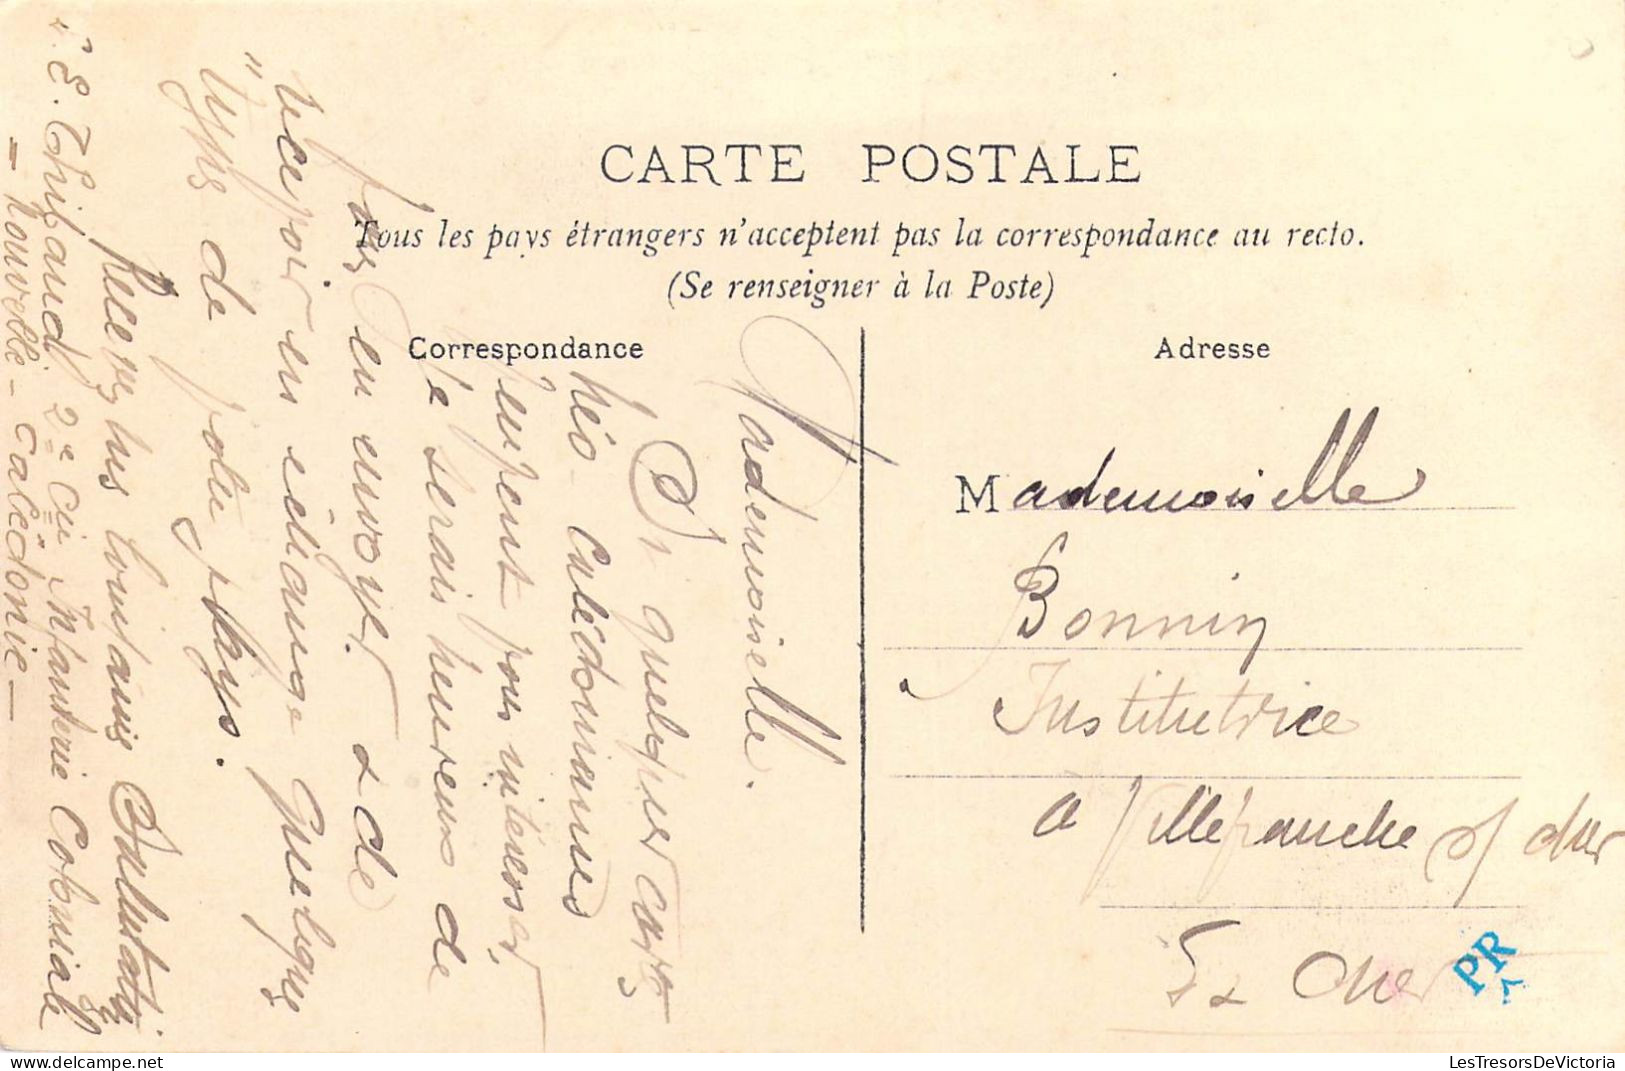 CARTE POSTALE
Tous les pays étrangers n'acceptent pas la correspondance au recto.
(Se renseigner à la Poste)
Correspondance
Adresse
Mademoiselle.
Si quelques cartes
Néo-Calédoniennes
peuvent vous intéresser,
Je serais heureux de
vous en envoyer. & de
recevoir en échange quelques
"Types de votre pays.
Recevez mes lointains Salutations
E. Thibaud 2e Cie Infanterie Coloniale
= Nouvelle-Calédonie =
Mademoiselle
Bonnin
Institutrice
à Villefranche s/ cher
Cher
PR
LesTresorsDeVictoria